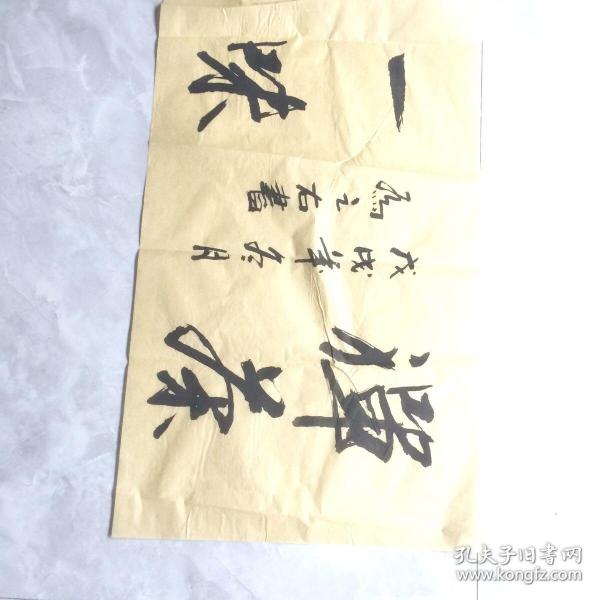 禪茶
戊戌年冬月
之右書
一味
孔夫子旧书网
www.kongfz.com